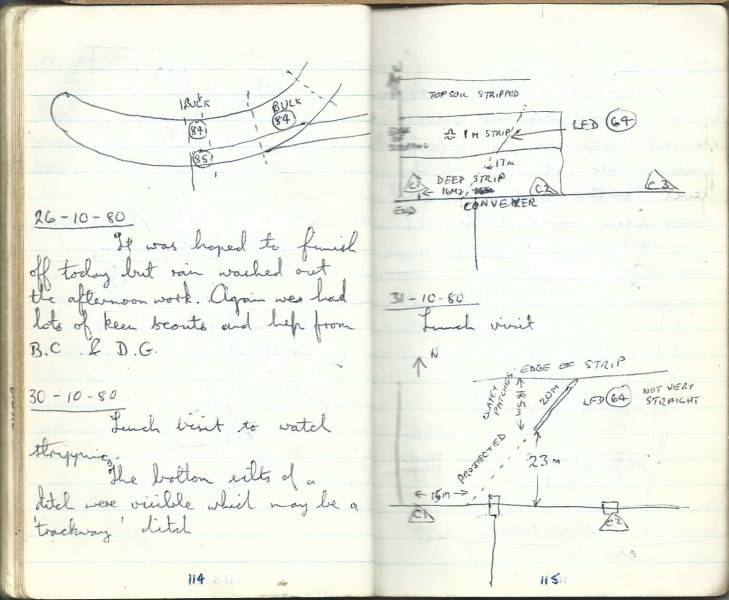 BULK
BULK
84
84
85
26-10-80
It was hoped to finish
off today but rain washed out
the afternoon work. Again we had
lots of keen scouts and help from
B.C. & D.G.
30-10-80
Lunch visit to watch
stripping.
The bottom silts of a
ditch were visible which may be a
'trackway' ditch
114
TOPSOIL STRIPPED
1M STRIP
LFD 64
17m
DEEP STRIP
C1
C2
C3
CONVEYER
31-10-80
Lunch visit
N
EDGE OF STRIP
CLAYEY PATCHES
18.5M
20M
LFD 64 NOT VERY
STRAIGHT
PROJECTED
23m
15M
C1
C2
115